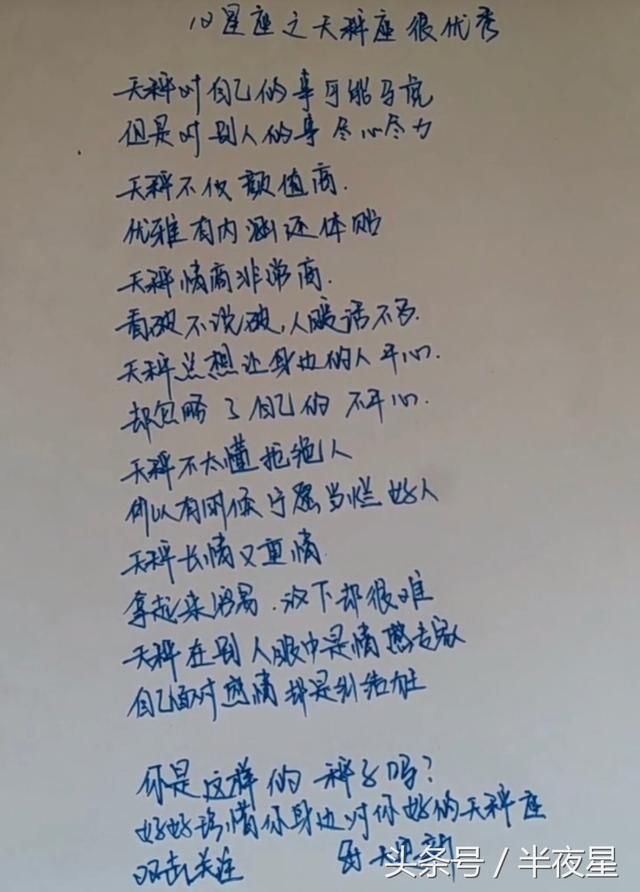 12星座之天秤座很优秀
天秤对自己的事可能马虎
但是对别人的事尽心尽力
天秤不仅颜值高.
优雅有内涵还体贴
天秤情商非常高.
看破不说破,人狠话不多.
天秤总想让身边的人开心.
却忽略了自己的不开心.
天秤不太懂拒绝人
所以有时候宁愿当烂好人
天秤长情又重情
拿起来容易.放下却很难
天秤在别人眼中是情感专家
自己面对感情却是纠结症
你是这样的秤子吗?
好好珍惜你身边对你好的天秤座
双击关注
头条号／半夜星